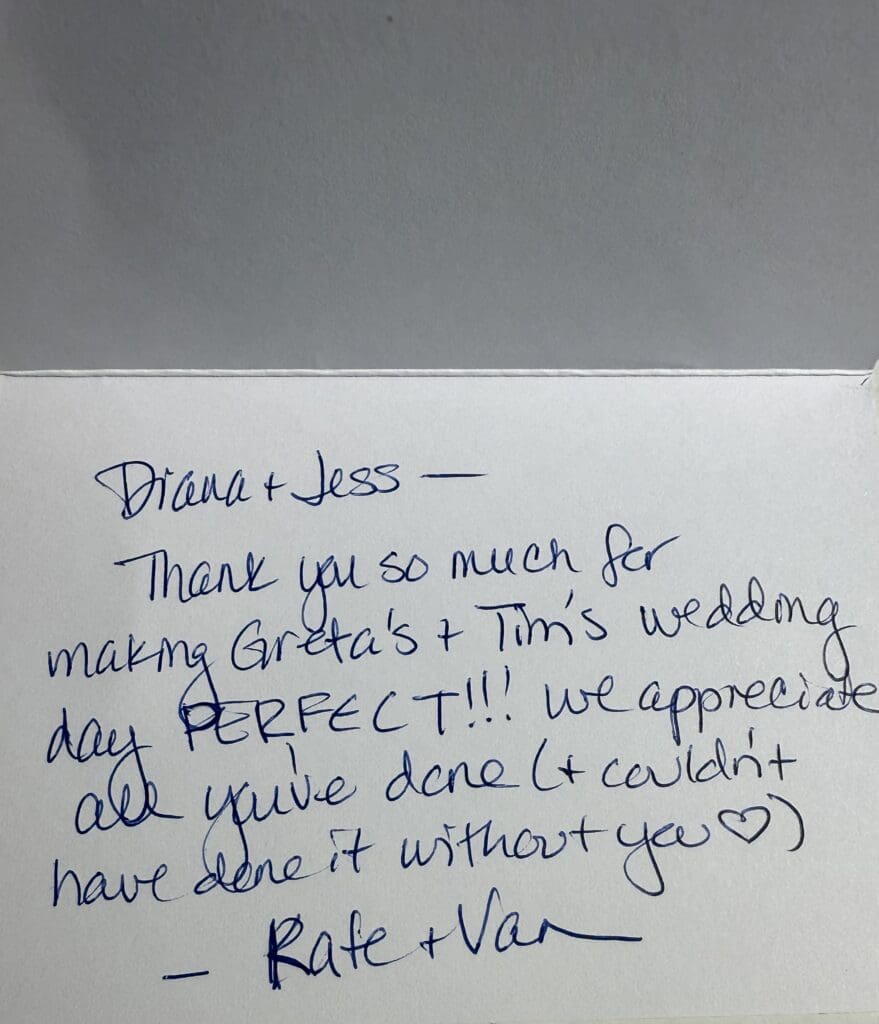 Diana + Jess —
Thank you so much for
making Greta's + Tim's wedding
day PERFECT!!! We appreciate
all you've done (+ couldn't
have done it without you ♡)
— Kate + Van